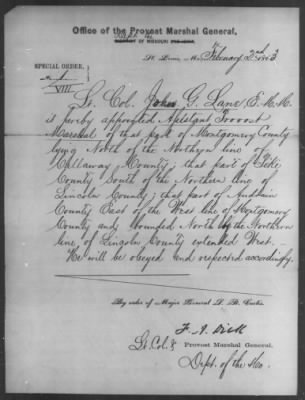 Office of the Provost Marshal General,
DISTRICT OF MISSOURI
St. Louis, Mo. February 2nd 1863
SPECIAL ORDER,
No.
VIII Lt. Col. John G. Lane, E.M.M.
is hereby appointed Assistant Provost
Marshal of that part of Montgomery County
lying North of the Northern line of
Callaway County; that part of Pike
County South of the Northern line of
Lincoln County; that part of Audrain
County East of the West line of Montgomery
County and bounded North by the Northern
line of Lincoln County extended West.
He will be obeyed and respected accordingly.
By order of Major General S. R. Curtis.
F. A. Dick
Lt. Col. & Provost Marshal General.
Dept. of the Mo.